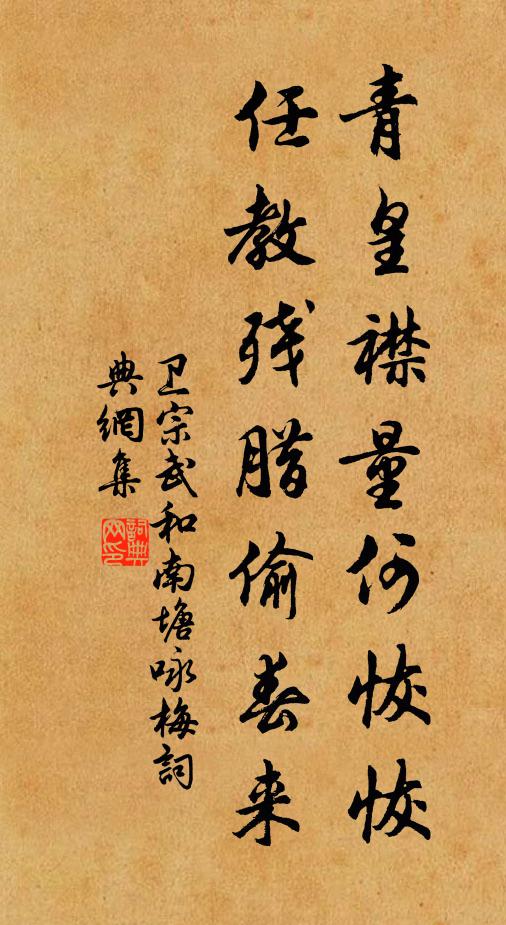 青皇襟量何恢恢
任教残腊偷春来
卫宗武和南塘咏梅词
典網集
詞典網印